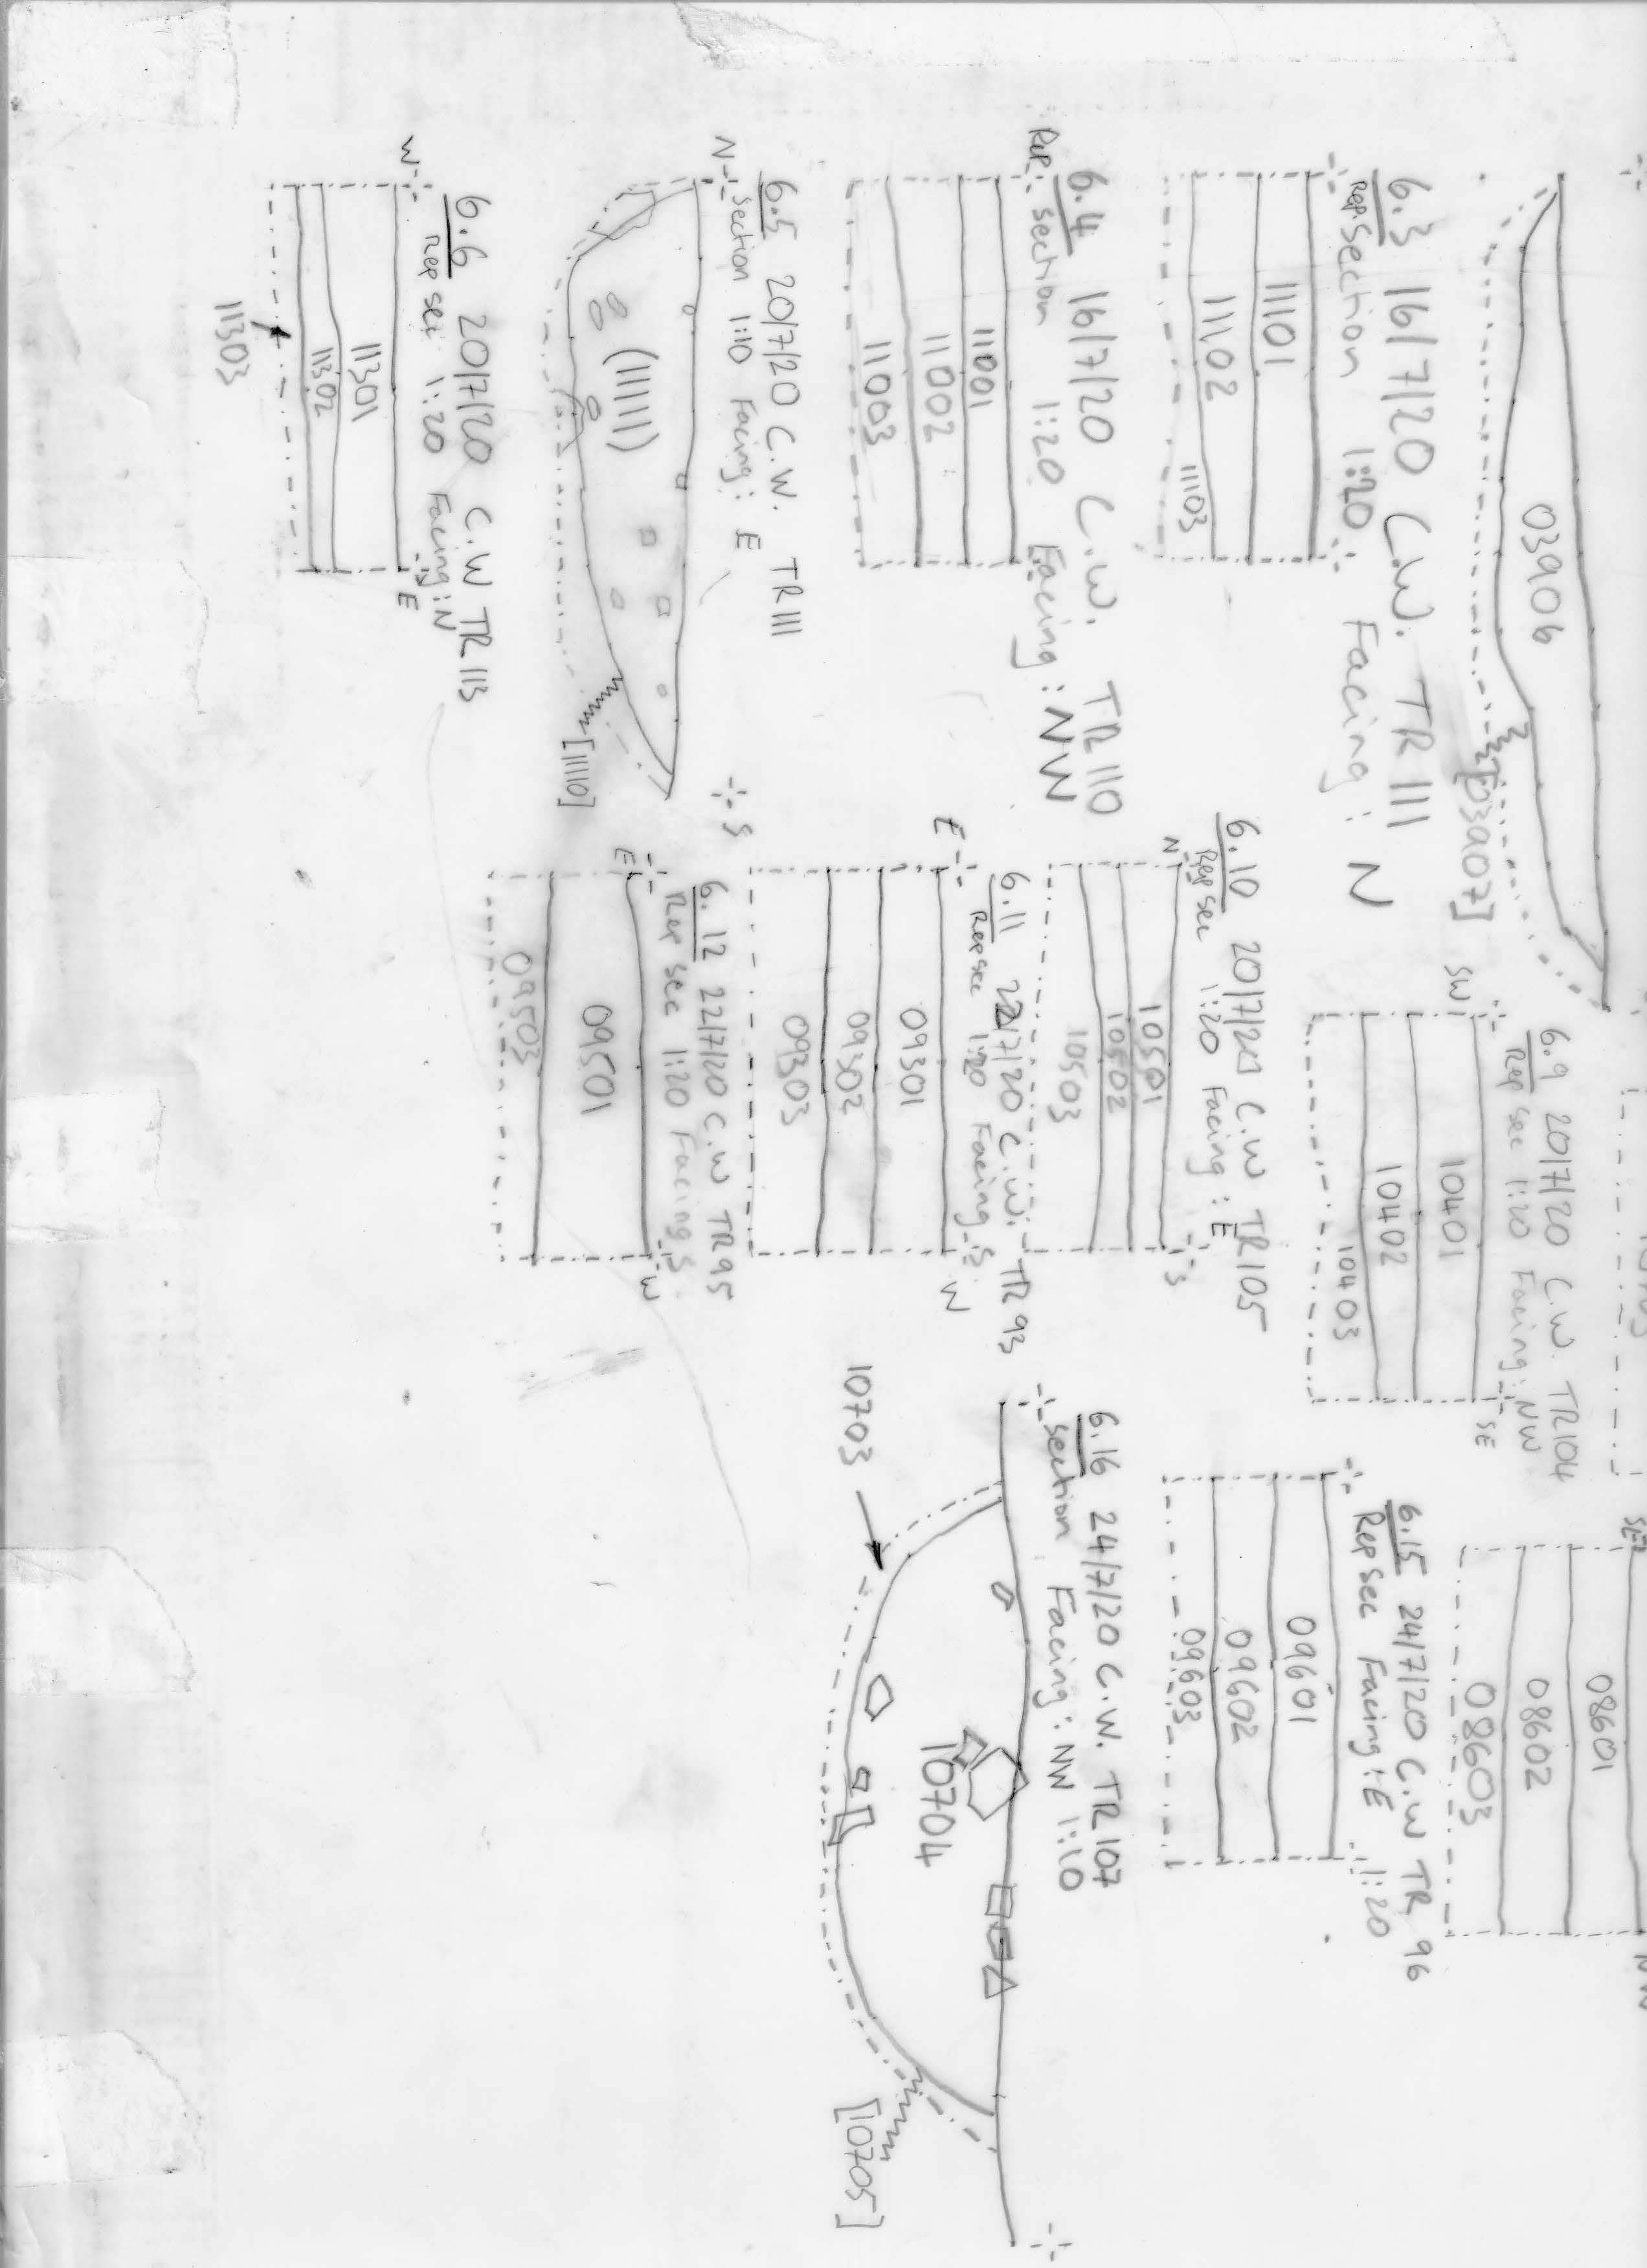 03906
[03907]
6.3 16/7/20 C.W. TR 111
Rep. Section 1:20 Facing: N
11101
11102
11103
6.4 16/7/20 C.W. TR 110
Rep. Section 1:20 Facing: NW
11001
11002
11003
6.5 20/7/20 C.W. TR111
N Section 1:10 Facing: E S
(11111)
[11110]
6.6 20/7/20 C.W TR 113
Rep sec 1:20 Facing: N
W E
11301
11302
11303
6.9 20/7/20 C.W. TR104
Rep sec 1:20 Facing: NW
SW SE
10401
10402
10403
6.10 20/7/20 C.W TR105
Rep sec 1:20 Facing: E
N S
10501
10502
10503
6.11 22/7/20 C.W. TR 93
Rep sec 1:20 Facing S
E W
09301
09302
09303
6.12 22/7/20 C.W TR95
Rep sec 1:20 Facing S
E W
09501
09503
SE NW
08601
08602
08603
6.15 24/7/20 C.W TR 96
Rep Sec Facing: E 1:20
09601
09602
09603
6.16 24/7/20 C.W. TR 107
Section Facing: NW 1:10
10704
10703
[10705]